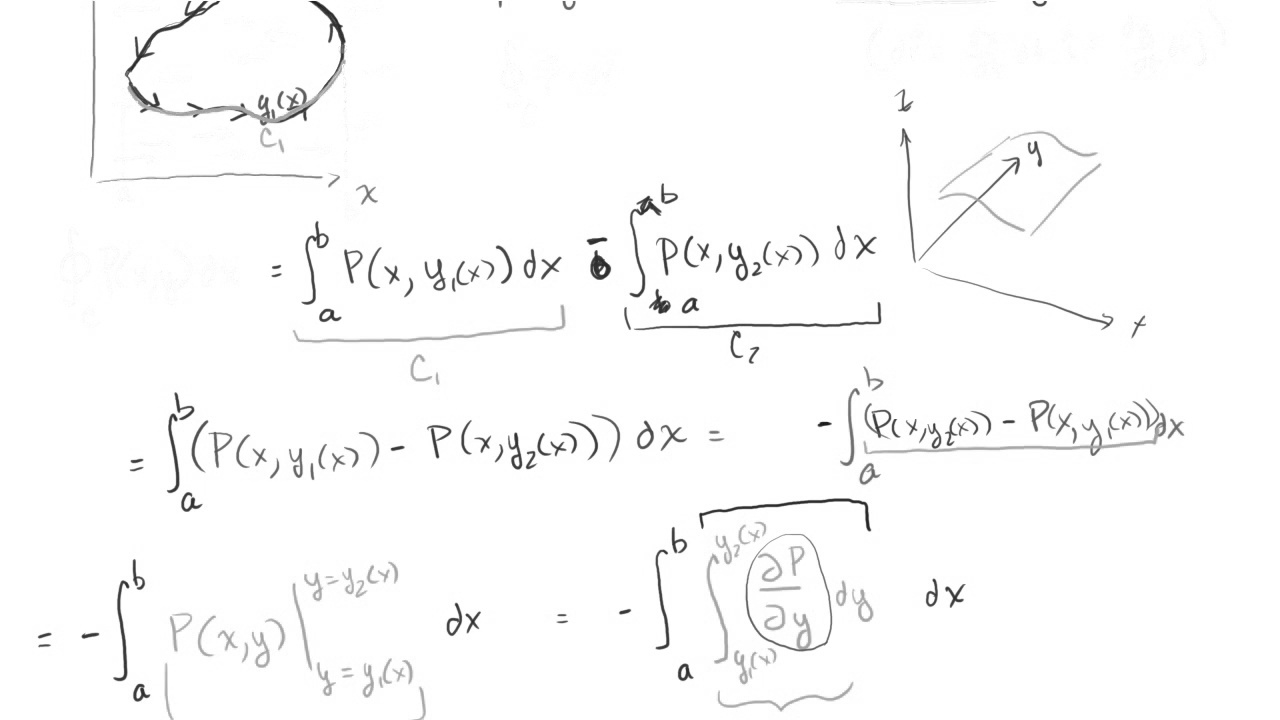 y₁(x)
C₁
x
z
y
x
= ∫ₐᵇ P(x, y₁(x)) dx - ∫ₐᵇ P(x, y₂(x)) dx
C₁
C₂
= ∫ₐᵇ (P(x, y₁(x)) - P(x, y₂(x))) dx = - ∫ₐᵇ (P(x, y₂(x)) - P(x, y₁(x))) dx
= - ∫ₐᵇ P(x,y) | y = y₂(x) y = y₁(x) dx = - ∫ₐᵇ ∫ y₂(x) y₁(x) ∂P/∂y dy dx